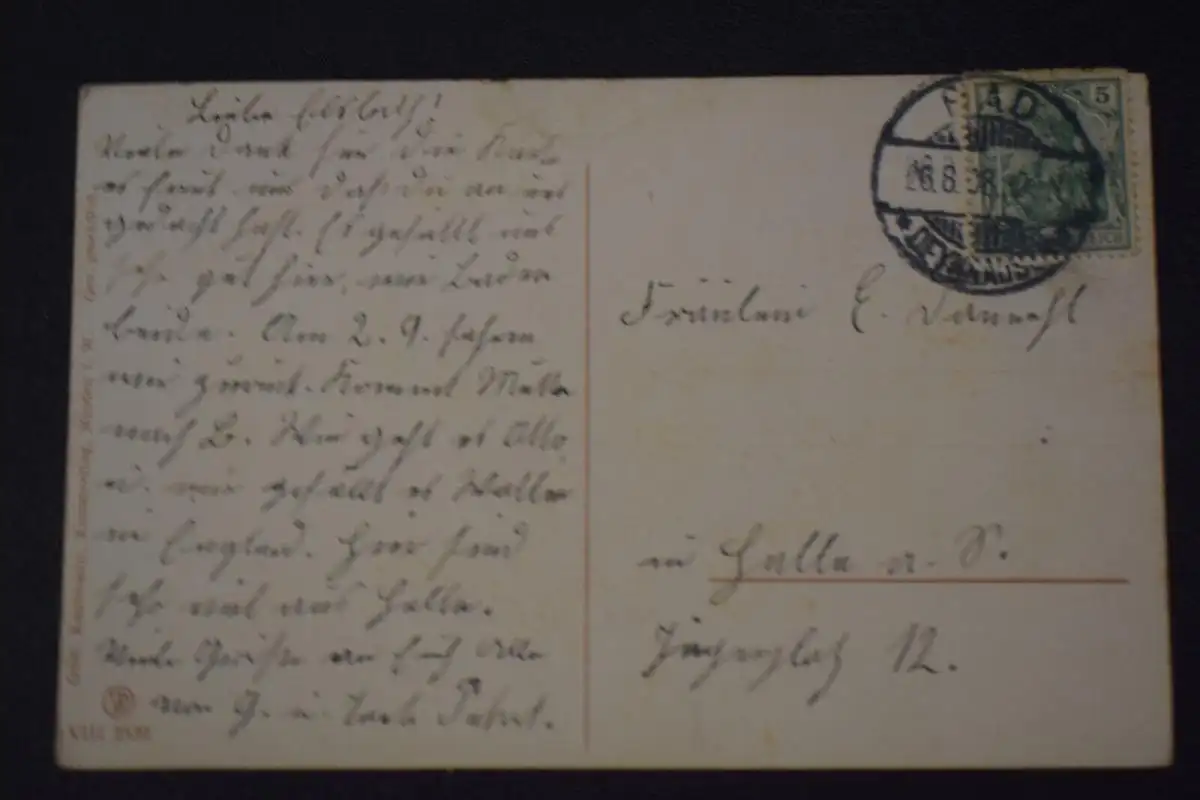 Liebe Elsbeth!
Viele Dank für die Karte
es freut uns daß du an uns
gedacht hast. Es gefällt uns
sehr gut hier, wir baden
beide. Am 2. 9. fahren
wir zurück. Kommt Mutter
nach B. Wie geht es Otto,
u. wie gefällt es Walter
in England. Hier sind
sehr viel aus Halle.
Viele Grüße an Euch Alle
von G. u. Tante
BAD
26.8.08
OEYNHAUSEN
5
Fräulein E.
in Halle a. S.
Jägerplatz 12.